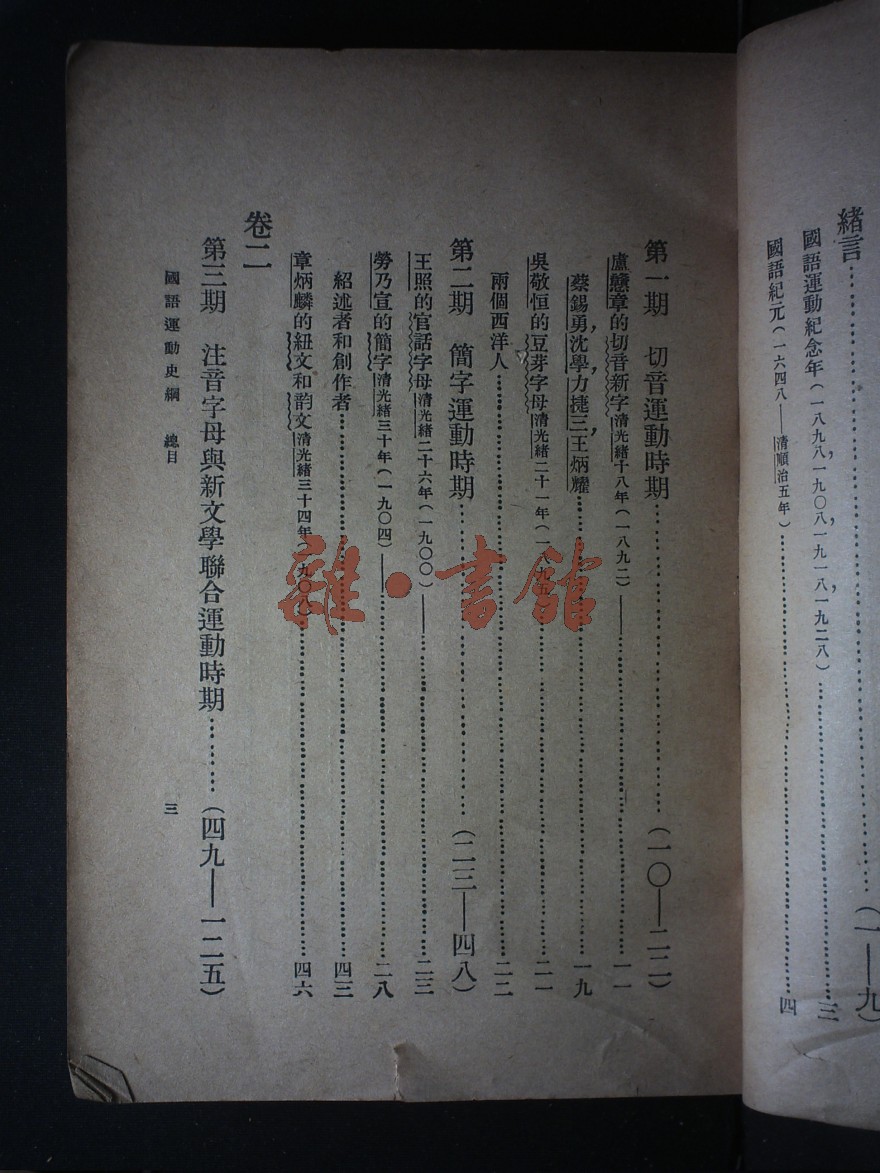 緒言……(一—九)
國語運動紀念年(一八九八,一九〇八,一九一八,一九二八)……三
國語紀元(一六四八——清順治五年)……四
第一期 切音運動時期……(一〇—二二)
盧戇章的切音新字清光緒十八年(一八九二)——……一一
蔡錫勇,沈學,力捷三,王炳耀……一九
吳敬恒的豆芽字母清光緒二十一年(一八九五……二一
兩個西洋人……二二
第二期 簡字運動時期……(二三—四八)
王照的官話字母清光緒二十六年(一九〇〇)——……二三
勞乃宣的簡字清光緒三十年(一九〇四)——……二八
紹述者和創作者……四三
章炳麟的紐文和韵文清光緒三十四年(一九〇八)……四六
卷二
第三期 注音字母與新文學聯合運動時期……(四九—一二五)
國語運動史綱 總目
三
雜·書館